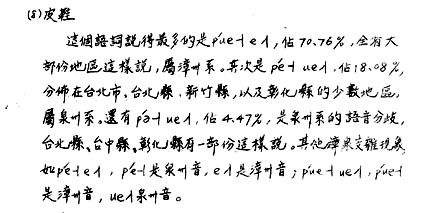 (8)皮鞋
這個語詞説得最多的是pʻueㄧeㄚ,佔70.76%,全省大
部份地區這樣說,屬漳州系。其次是pʻeㄧueㄚ,佔18.08%,
分佈在台北市、台北縣、新竹縣,以及彰化縣的少數地區,
屬泉州系。還有pʻəㄧueㄚ,佔4.47%,是泉州系的語音分歧,
台北縣、台中縣、彰化縣有一部份這樣説。其他漳泉交雜現象
如pʻeㄧeㄚ,pʻeㄧ是泉州音,eㄚ是漳州音;pʻueㄧueㄚ,pʻueㄧ
是漳州音,ueㄚ泉州音。